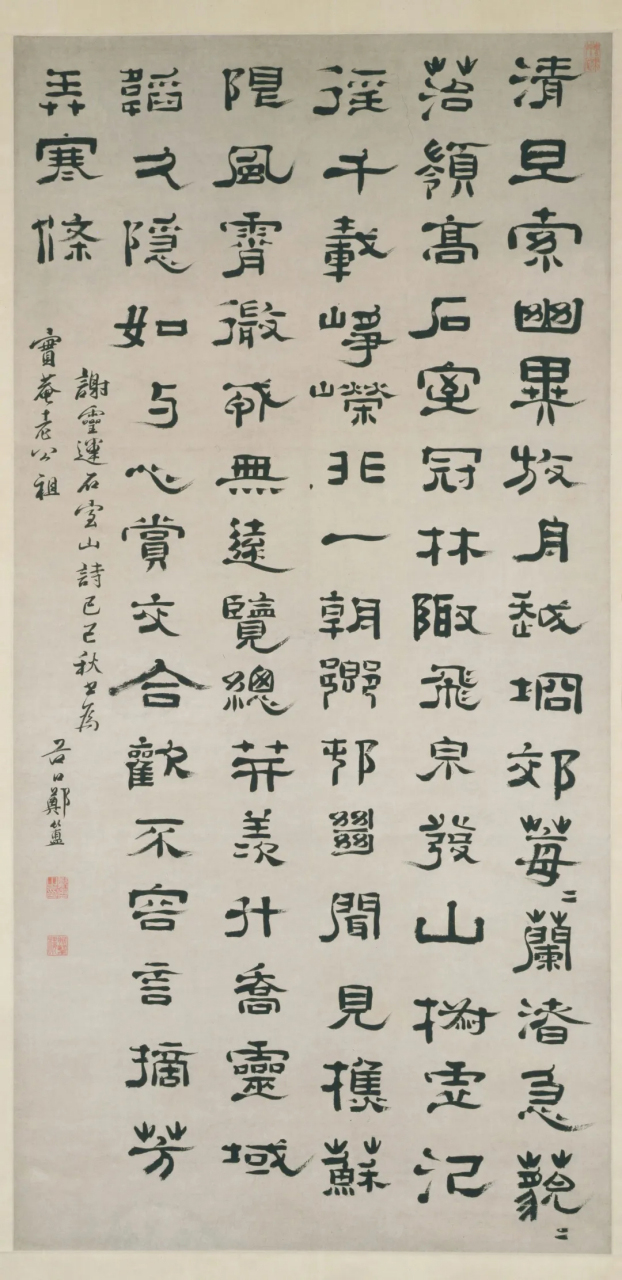 清旦索幽異放舟越坰郊莓〻蘭渚急藐〻
菭嶺高石室冠林陬飛泉發山椒虛泛
徑千載崢嶸非一朝鄉邨㡭聞見樵蘇
限風霄微戎無遠覽總笄羨升喬靈域
韜久隱如与心賞交合歡不容言摘芳
弄寒條
謝靈運石室山詩己巳秋書為
寶菴老公祖
谷口鄭簠